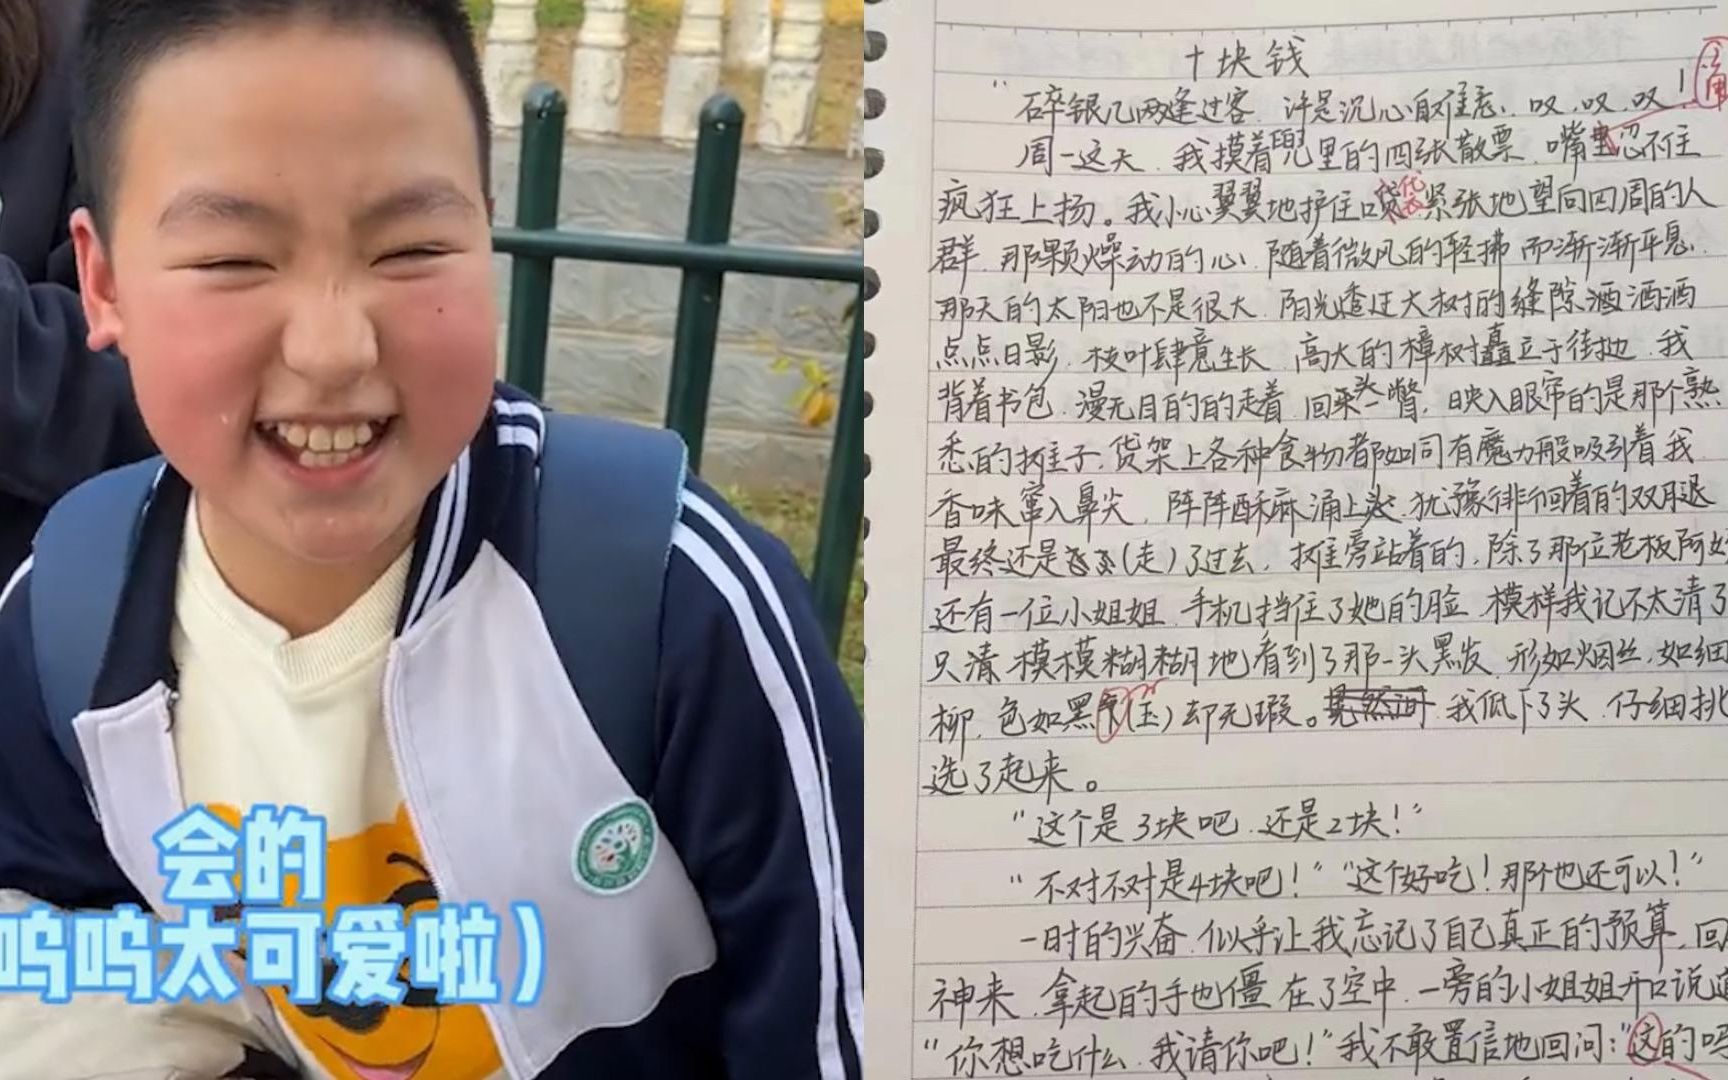 会的
呜呜太可爱啦）
十块钱
“碎银几两逢过客，许是沉心自难忘、叹，叹，叹！
周一这天，我摸着兜里的四张散票，嘴里忍不住
疯狂上扬。我小心翼翼地护住口袋紧张地望向四周的人
群，那颗燥动的心，随着微风的轻拂而渐渐平息，
那天的太阳也不是很大，阳光透过大树的缝隙洒洒洒
点点日影，枝叶肆意生长，高大的樟树矗立于街边，我
背着书包，漫无目的的走着，回来头一瞥，映入眼帘的是那个熟
悉的摊子，货架上各种食物都如同有魔力般吸引着我
香味窜入鼻尖，阵阵酥麻涌上头，犹豫徘徊着的双腿
最终还是（走）了过去，摊旁站着的，除了那位老板阿
还有一位小姐姐，手机挡住了她的脸，模样我记不太清了
只清模模糊糊地看到了那一头黑发，形如烟丝，如细
柳，色如黑（玉）却无瑕。我低下了头，仔细挑
选了起来。
“这个是3块吧，还是2块！”
“不对不对是4块吧！”“这个好吃！那个也还可以！”
一时的兴奋，似乎让我忘记了自己真正的预算，回
神来，拿起的手也僵在了空中，一旁的小姐姐开口说道
“你想吃什么，我请你吧！”我不敢置信地回问：“这的吗